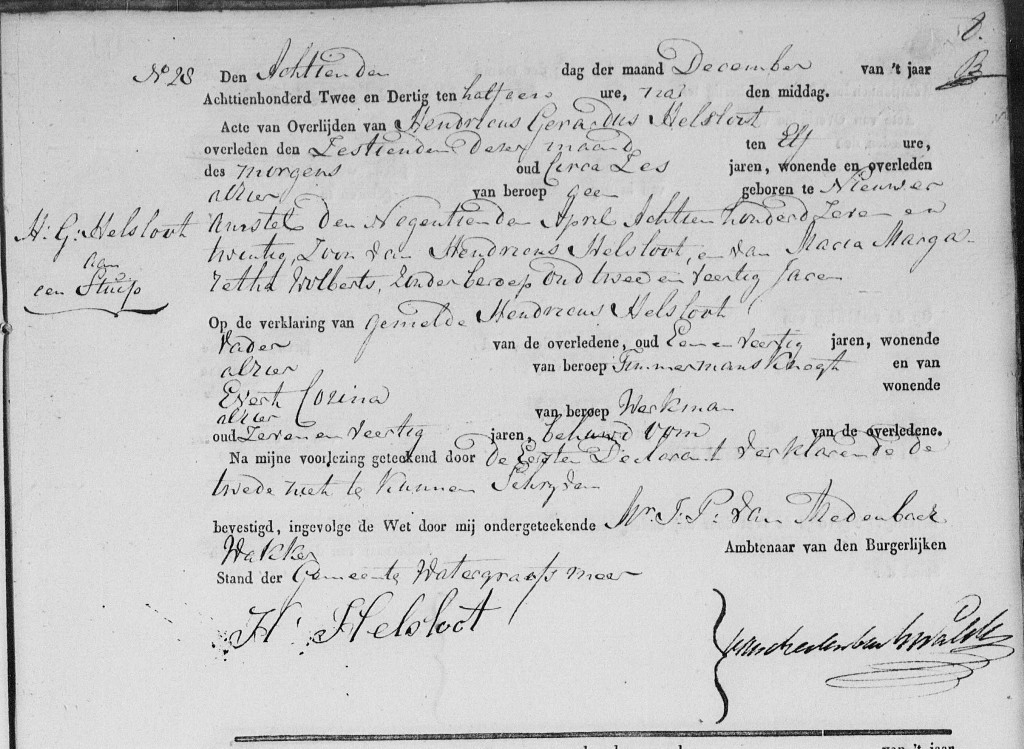 8.
B
No 28 Den Achttienden dag der maand December van 't jaar
Achttienhonderd Twee en Dertig ten half een ure, na den middag.
Acte van Overlijden van Hendricus Gerardus Helsloot
overleden den Zestienden dezer maand ten Elf ure,
des morgens oud Circa Zes jaren, wonende en overleden
alhier van beroep geen geboren te Nieuwer
Amstel den Negentienden April Achttien honderd Zeven en
twintig, Zoon van Hendricus Helsloot, en van Maria Marga-
retha Wolberts, Zonder beroep oud twee en veertig Jaren
H. G. Helsloot
aan
een Stuip
Op de verklaring van gemelde Hendricus Helsloot
Vader van de overledene, oud Een en veertig jaren, wonende
alhier van beroep Timmermans Knegt en van
Evert Corina wonende
alhier van beroep Werkman
oud Zeven en veertig jaren, behuwd oom van de overledene.
Na mijne voorlezing geteekend door de Eersten Declarant verklarende de
twede niet te kunnen Schryven
bevestigd, ingevolge de Wet door mij ondergeteekende Mr. J. P. van
Wakker Ambtenaar van den Burgerlijken
Stand der Gemeente Watergraafsmeer
H. Helsloot
van 't jaar